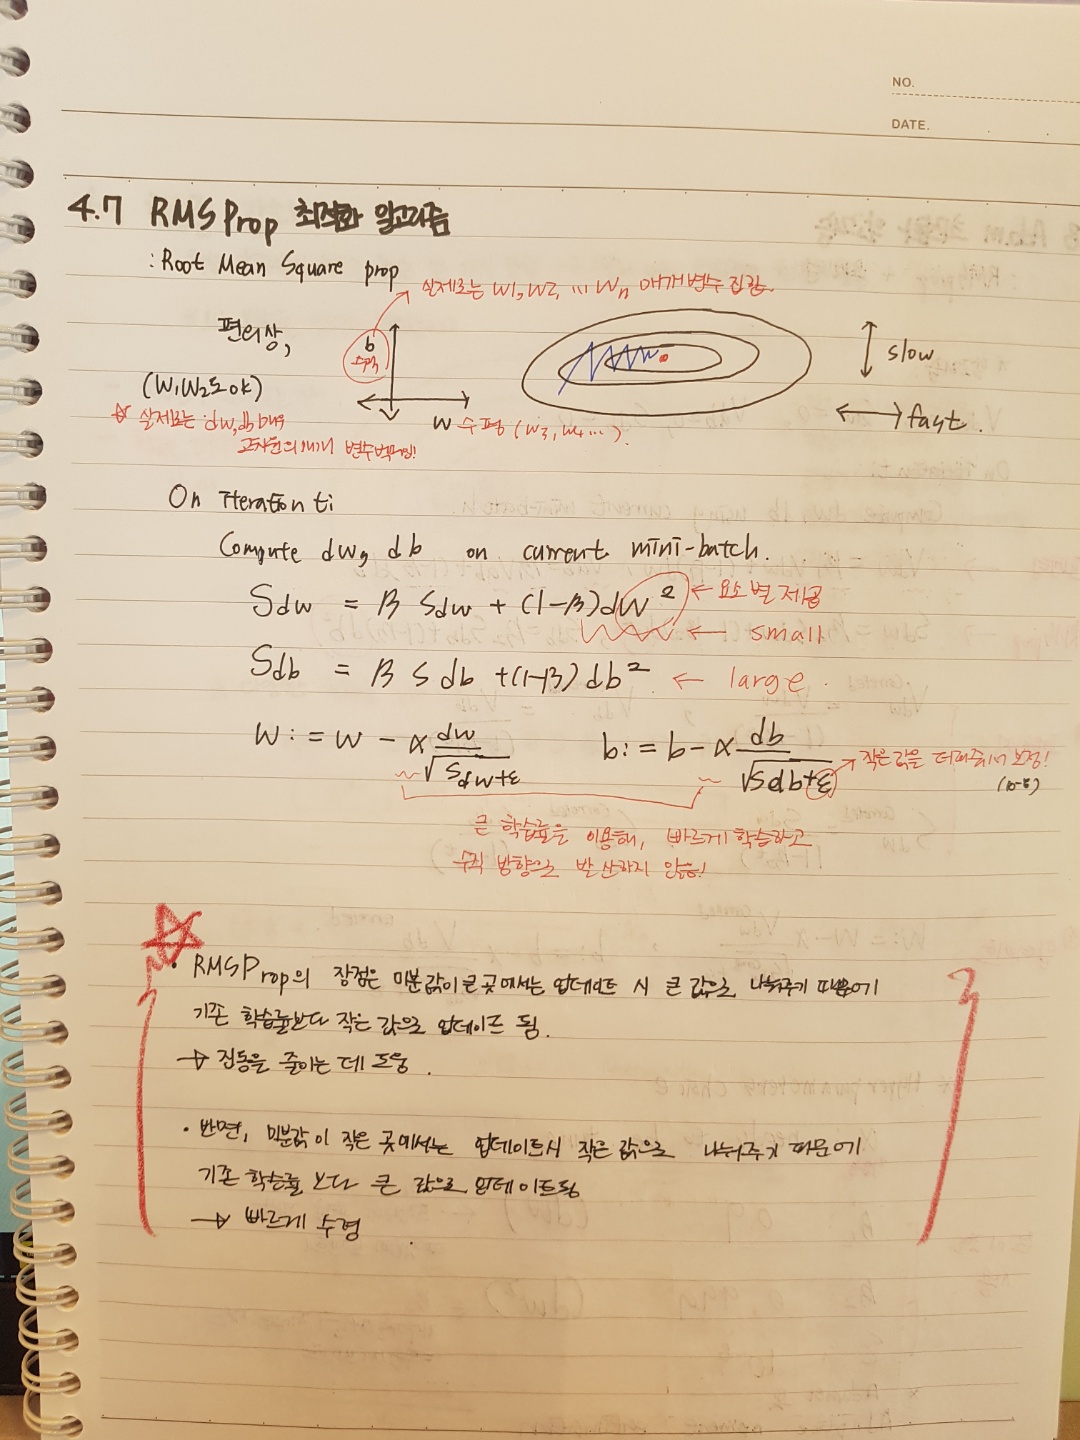 NO.
DATE.
4.7 RMSProp 최적화 알고리즘
: Root Mean Square prop
실제로는 W1, W2, ... Wn 매개변수 집합.
편의상,
b
수직
slow
(W1 W2도 ok)
W 수평 (W3, W4...).
fast.
☆ 실제로는 dw, db
고차원의 매개 변수
On iteration ti
Compute dw, db on current mini-batch.
Sdw = β Sdw + (1-β)dW² ← 요소별 제곱
← small
Sdb = β Sdb + (1-β) db² ← large.
W := W - α dw/√Sdw+ε b := b - α db/√Sdb+ε → 작은값을 더해줘서 보정!
(10-8)
큰 학습률을 이용해, 빠르게 학습하고
수직 방향으로 발산하지 않음!
• RMSProp의 장점은 미분값이 큰 곳에서는 업데이트 시 큰 값으로 나눠주기 때문에
기존 학습률보다 작은 값으로 업데이트 됨.
→ 진동을 줄이는 데 도움.
• 반면, 미분값이 작은 곳에서는 업데이트시 작은 값으로 나눠주기 때문에
기존 학습률 보다 큰 값으로 업데이트됨
→ 빠르게 수렴